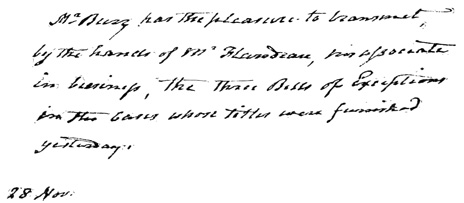 Mr Burr has the pleasure to transmit,
by the hands of Mr Flandeau, his associate
in business, the three Bills of Exceptions
in the cases whose titles were furnished
yesterday.
28 Nov.